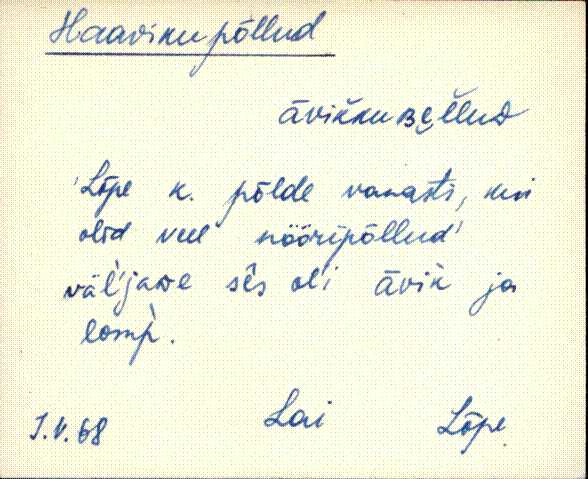 Haaviku põllud
āvikku Bęl̆lud
'Lõpe k. põlde vanasti, kui
olid veel nööripõllud'
väl'jase sē̬s ol'i āvik ja
lomp̀.
J.V.68 Lai Lõpe